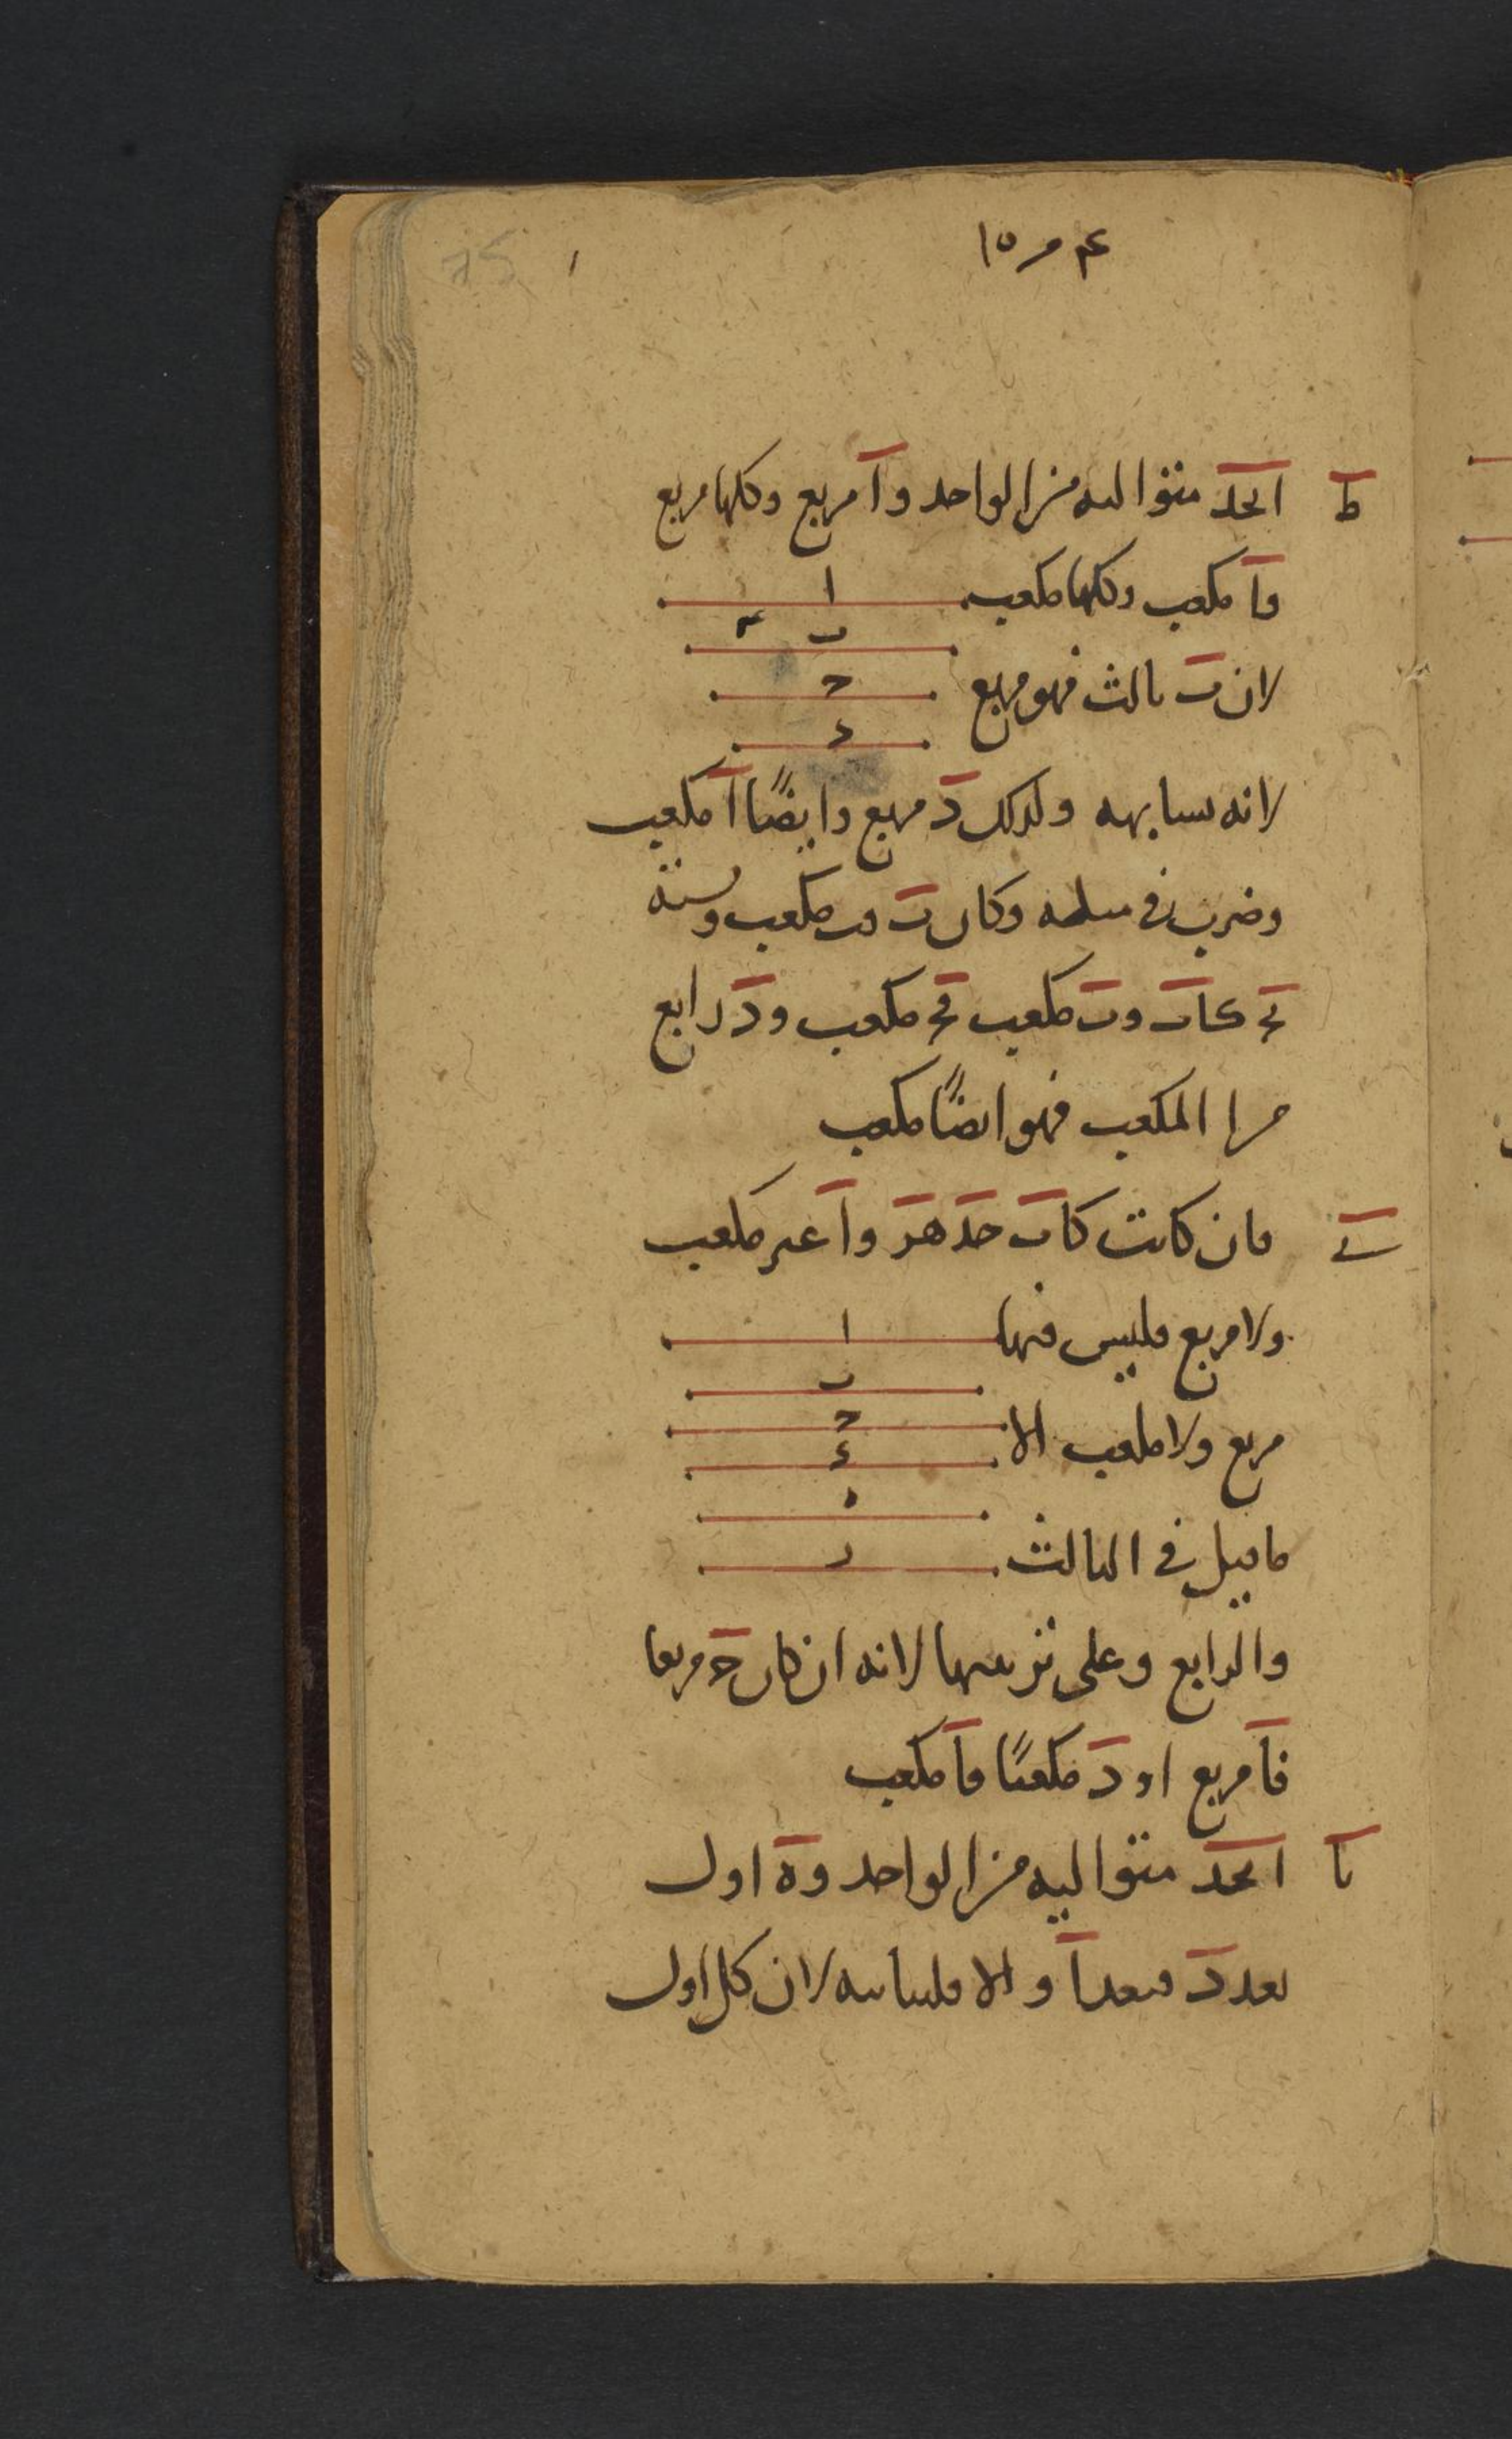 ط ابجد متواليه من الواحد وا مربع وكلها مربع
فا مكعب وكلها مكعب
ا
ب
لان ب ثالث فهو مربع
ج
د
لانه يشابهه ولذلك د مربع وايضًا ا مكعب
وضرب في مثله وكان ب فب مكعب ونسبة
ج كاب وب مكعب فج مكعب ود رابع
من ا المكعب فهو ايضًا مكعب
ي فان كانت كاب جد هز وا غير مكعب
ولا مربع فليس فيها
ا
ب
مربع ولا مكعب الا
ج
د
ه
ما قيل في الثالث
ز
والرابع وعلى ترتيبها لانه ان كان ج مربعا
فا مربع او د مكعبًا فا مكعب
يا ابجد متواليه من الواحد وه اول
يعد د فيعد ا والا فليباينه لان كل اول